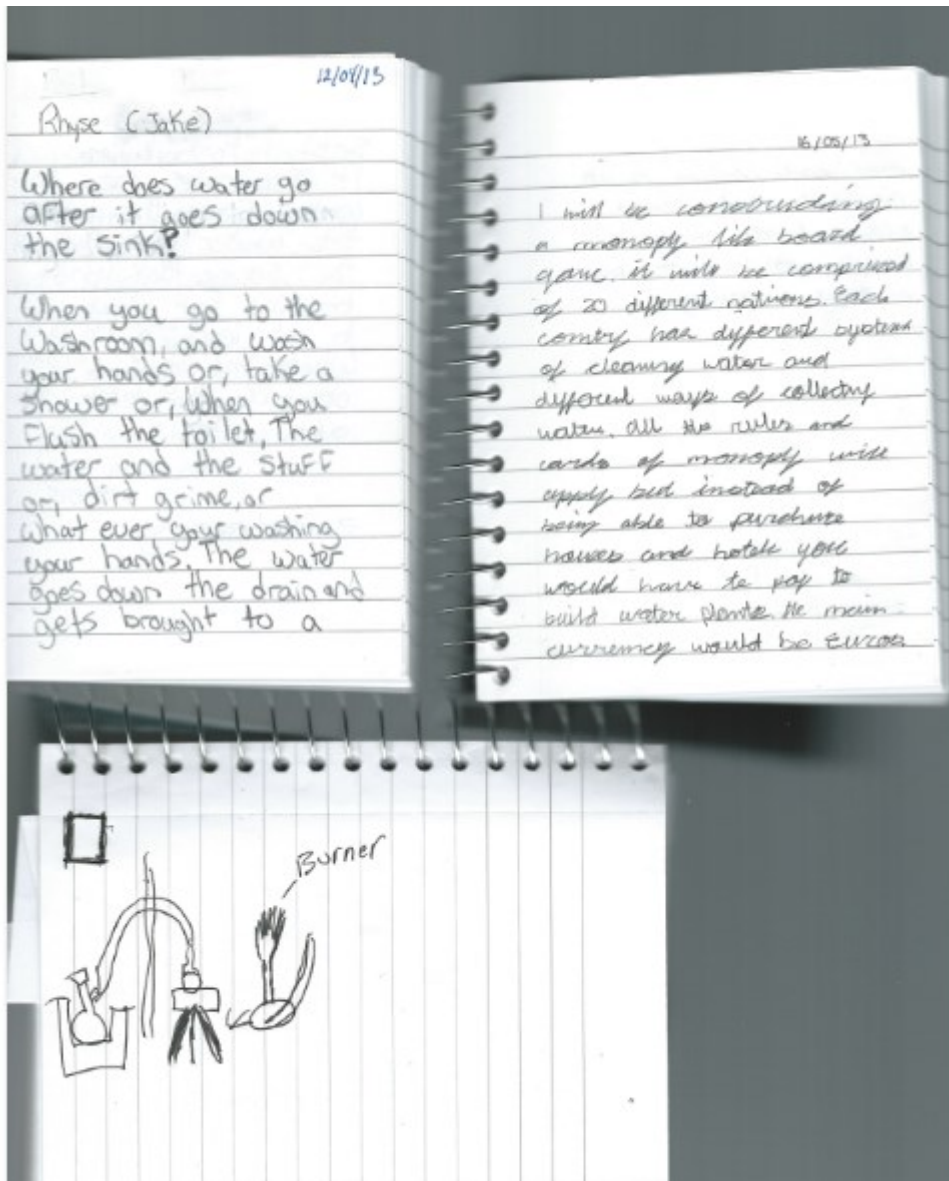 12/04/13
Rhyse (Jake)
Where does water go
after it goes down
the sink?
When you go to the
washroom, and wash
your hands or, take a
shower or, when you
Flush the toilet, The
water and the stuff
or, dirt grime, or
what ever your washing
your hands. The water
goes down the drain and
gets brought to a
16/05/13
I will be
a monoply lik board
game. it will be comprised
of 20 different nations. Each
comtry has different systems
of cleaning water and
different ways of collecting
water. All the rules and
cards of monoply will
apply but instead of
being able to purchase
houses and hotels you
would have to pay to
build water plants. The main
currency would be Euros
Burner